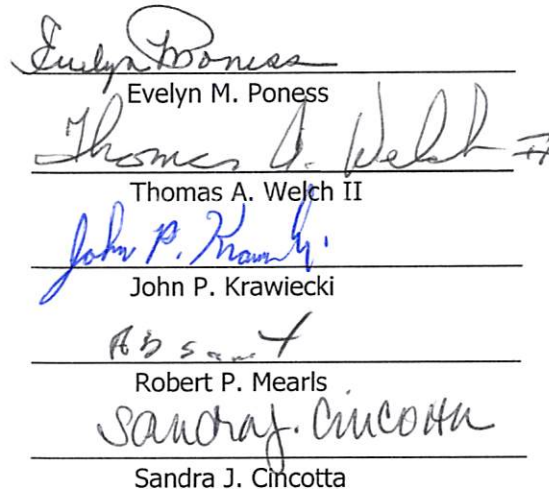 Evelyn Poness
Evelyn M. Poness
Thomas A. Welch II
Thomas A. Welch II
John P.
John P. Krawiecki
Absent
Robert P. Mearls
Sandra J. Cincotta
Sandra J. Cincotta